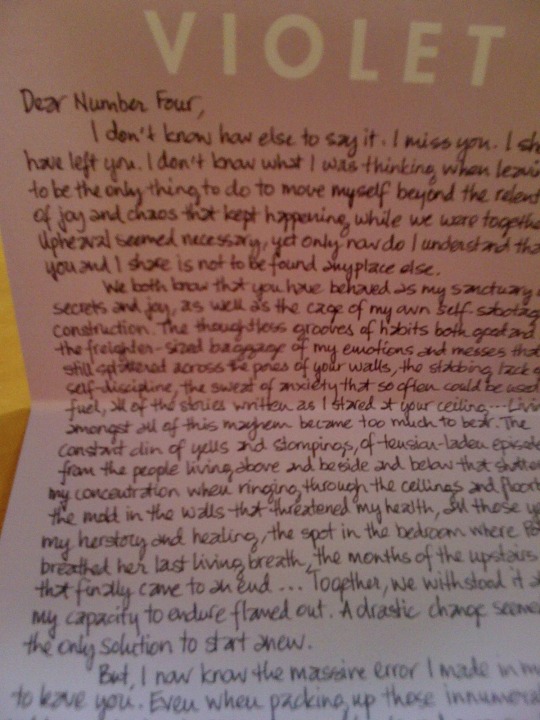 VIOLET
Dear Number Four,
I don't know how else to say it. I miss you. I
have left you. I don't know what I was thinking, when
to be the only thing to do to move myself beyond the
of joy and chaos that kept happening, while we were
Upheaval seemed necessary, yet only now do I understand
you and I share is not to be found anyplace else.
We both know that you have behaved as my sanctuary
secrets and joy, as well as the cage of my own self-
construction. The thoughtless grooves of habits both good and
the freighter-sized baggage of my emotions and messes that
still splattered across the pores of your walls, the stabbing lack
self-discipline, the sweat of anxiety that so often could be used
fuel, all of the stories written as I stared at your ceiling...
amongst all of this mayhem became too much to bear. The
constant din of yells and stompings, of tension-laden
from the people living above and beside and below that
my concentration when ringing through the ceilings and
the mold in the walls that threatened my health, all those
my herstory and healing, the spot in the bedroom where
breathed her last living breath, the months of the upstairs
that finally came to an end ... Together, we withstood it
my capacity to endure flamed out. A drastic change
the only solution to start anew.
But, I now know the massive error I made in
to leave you. Even when packing up those